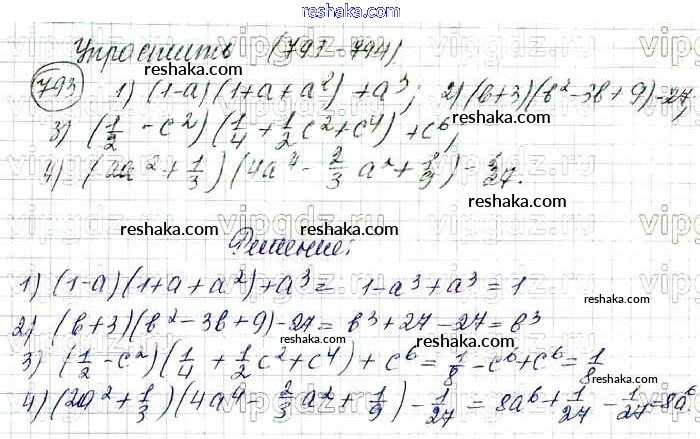 reshaka.com
Упростить (791-794).
793 1) (1-a)(1+a+a²)+a³; 2) (b+3)(b²-3b+9)-27;
3) (1/2 - c²)(1/4 + 1/2 c² + c⁴) + c⁶;
4) (2a² + 1/3)(4a⁴ - 2/3 a² + 1/9) - 1/27.
Решение:
1) (1-a)(1+a+a²)+a³ = 1-a³+a³ = 1
2) (b+3)(b²-3b+9)-27 = b³+27-27 = b³
3) (1/2 - c²)(1/4 + 1/2 c² + c⁴) + c⁶ = 1/8 - c⁶ + c⁶ = 1/8
4) (2a² + 1/3)(4a⁴ - 2/3 a² + 1/9) - 1/27 = 8a⁶ + 1/27 - 1/27 = 8a⁶
reshaka.com